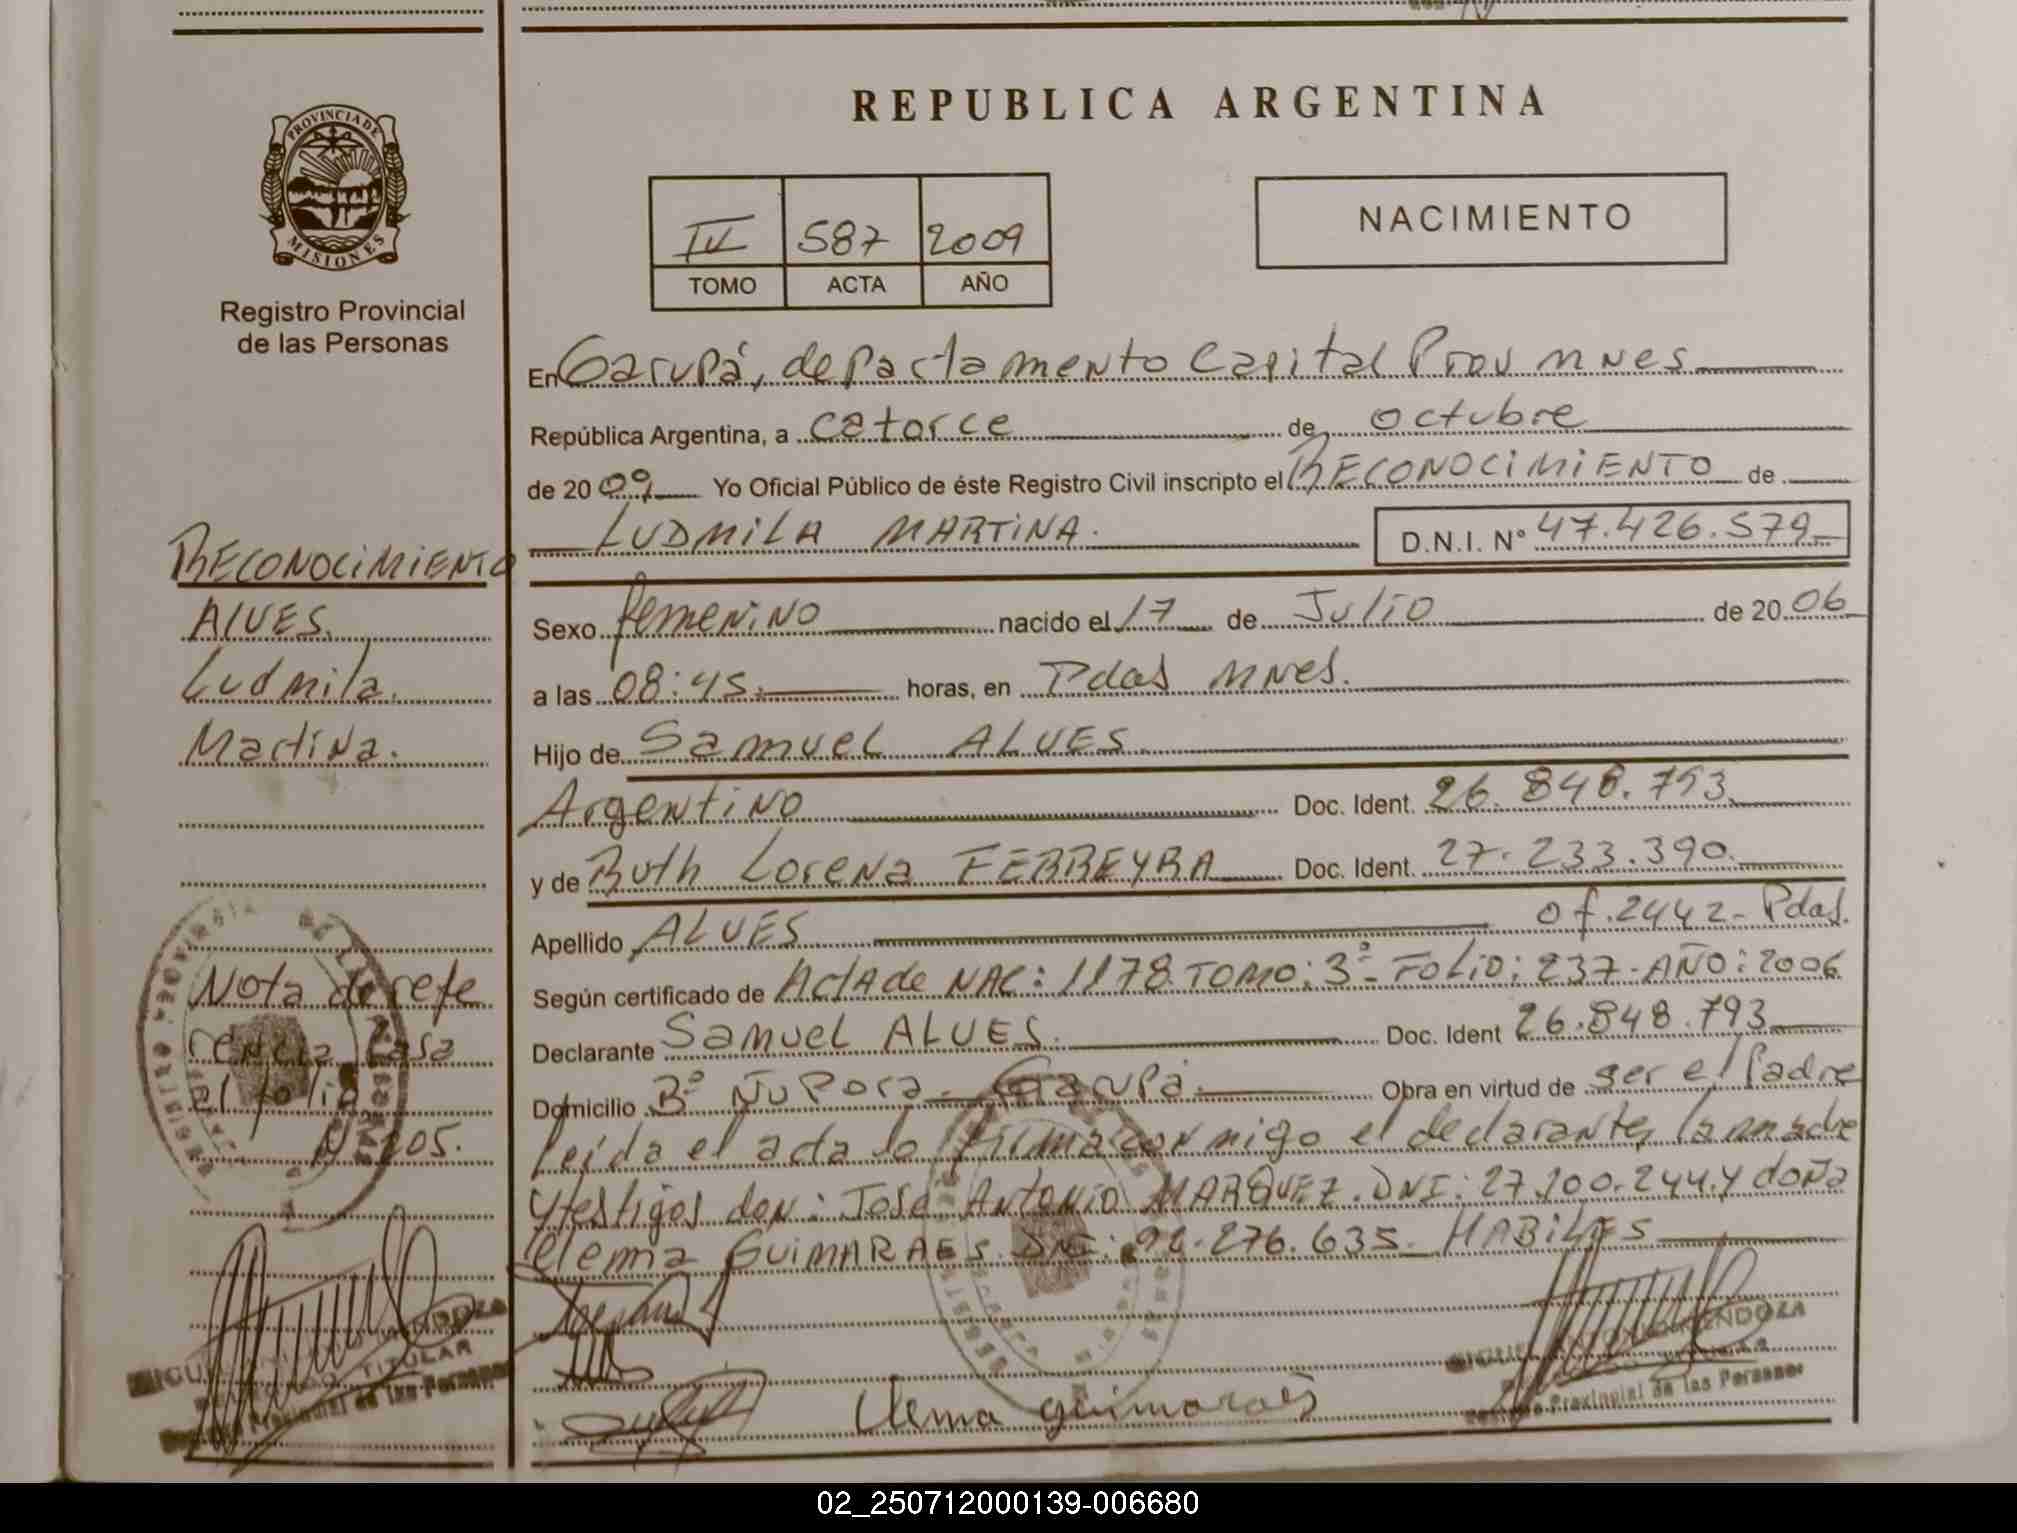 PROVINCIA DE
MISIONES
Registro Provincial
de las Personas
RECONOCIMIENTO
ALVES.
Ludmila.
Martina.
Nota de refe
rencia pasa
al folio
Nº 205.
REPUBLICA ARGENTINA
IV 587 2009
TOMO ACTA AÑO
NACIMIENTO
En Garupá, departamento Capital Prov mnes
República Argentina, a catorce de octubre
de 2009 Yo Oficial Público de éste Registro Civil inscripto el RECONOCIMIENTO de
LUDMILA MARTINA.
D.N.I. Nº 47.426.579
Sexo femenino nacido el 17 de Julio de 2006
a las 08:45. horas, en Pdas mnes.
Hijo de Samuel ALVES
Argentino Doc. Ident. 26.848.793
y de Ruth Lorena FERREYRA Doc. Ident. 27.233.390.
Apellido ALVES of.2442-Pdas.
Según certificado de Acta de NAC: 1178 TOMO: 3º- FOLIO: 237-AÑO: 2006
Declarante Samuel ALVES. Doc. Ident 26.848.793
Domicilio Bº Ñu Pora- Garupá. Obra en virtud de ser el Padre
leída el acta la firma conmigo el declarante, la madre
y testigos don: José Antonio MARQUEZ. DNI: 27.200.244.y doña
Clemia GUIMARAES. DNI: 92.276.635. HABILES
guimaraes
MENDOZA
TITULAR
Provincial de las Personas
MENDOZA
Provincial de las Personas
02_250712000139-006680